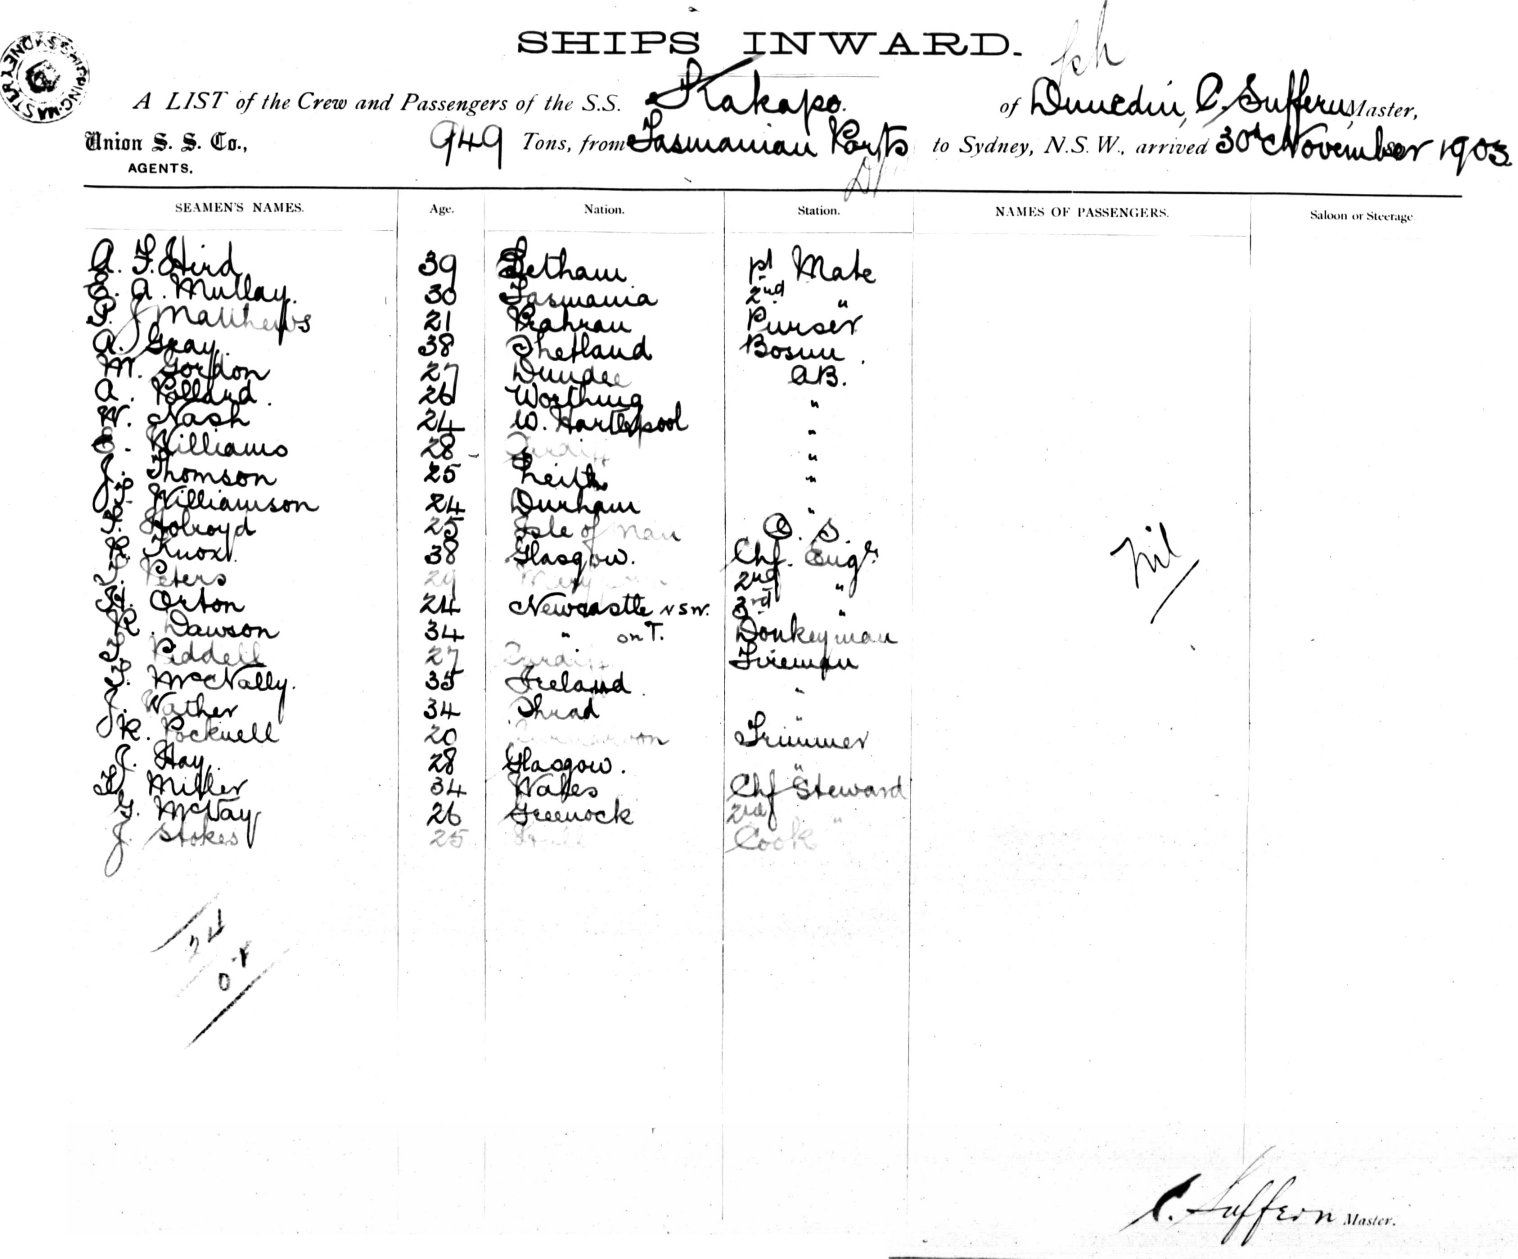 SHIPS INWARD.
A LIST of the Crew and Passengers of the S.S. Kakapo. of Dunedin, C. Suffern, Master,
Union S. S. Co., 949 Tons, from Tasmanian Ports to Sydney, N.S.W., arrived 30th November 1903
AGENTS.
SEAMEN'S NAMES. Age. Nation. Station. NAMES OF PASSENGERS. Saloon or Steerage
A. F. Hird 39 Letham 1st Mate
E. A. Mullay. 30 Tasmania 2nd "
P. J Matthews 21 Prahran Purser
A. Gray. 38 Shetland Bosun.
M. Gordon 27 Dundee AB.
A. Pollard. 26 Worthing "
W. Nash 24 W. Hartlepool "
E. Williams 28 Cardiff "
J. Thomson 25 Leith "
F. Williamson 24 Durham "
Holroyd 25 Isle of Man O. S.
R. Knox. 38 Glasgow. Chf. Engr
Peters 29 2nd "
H. Orton 24 Newcastle NSW. 3rd "
R. Dawson 34 " on T. Donkeyman
Piddell 27 Cardiff Fireman
McNally. 35 Ireland "
J. Wather 34 "
R. Pocknell 20 Trimmer
C. Hay. 28 Glasgow. "
H. Miller 34 Wales Chf Steward
G. McVay 26 Greenock 2nd "
J. Stokes 25 Cook
Nil
24
0
C. Suffern Master.